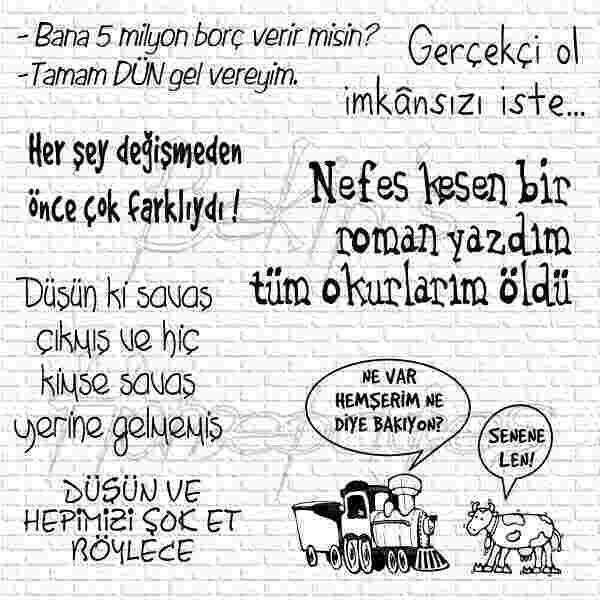 - Bana 5 milyon borç verir misin?
-Tamam DÜN gel vereyim.
Gerçekçi ol
imkânsızı iste...
Her şey değişmeden
önce çok farklıydı!
Nefes kesen bir
roman yazdım
tüm okurlarım öldü
Düşün ki savaş
çıkmış ve hiç
kimse savaş
yerine gelmemiş
DÜŞÜN VE
HEPİMİZİ ŞOK ET
BÖYLECE
NE VAR
HEMŞERİM NE
DİYE BAKIYON?
SENENE
LEN!